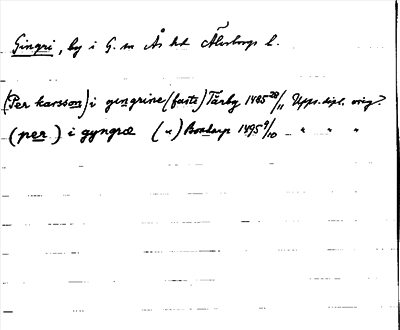 Gingri, by i G. sn Ås hd Älvsborgs l.
(Per karsson) i gingrine (faste) Tärby 1485 28/11 Upps. dipl. orig.
(per) i gyngræ (") Bondarp 1495 9/10 – " " "